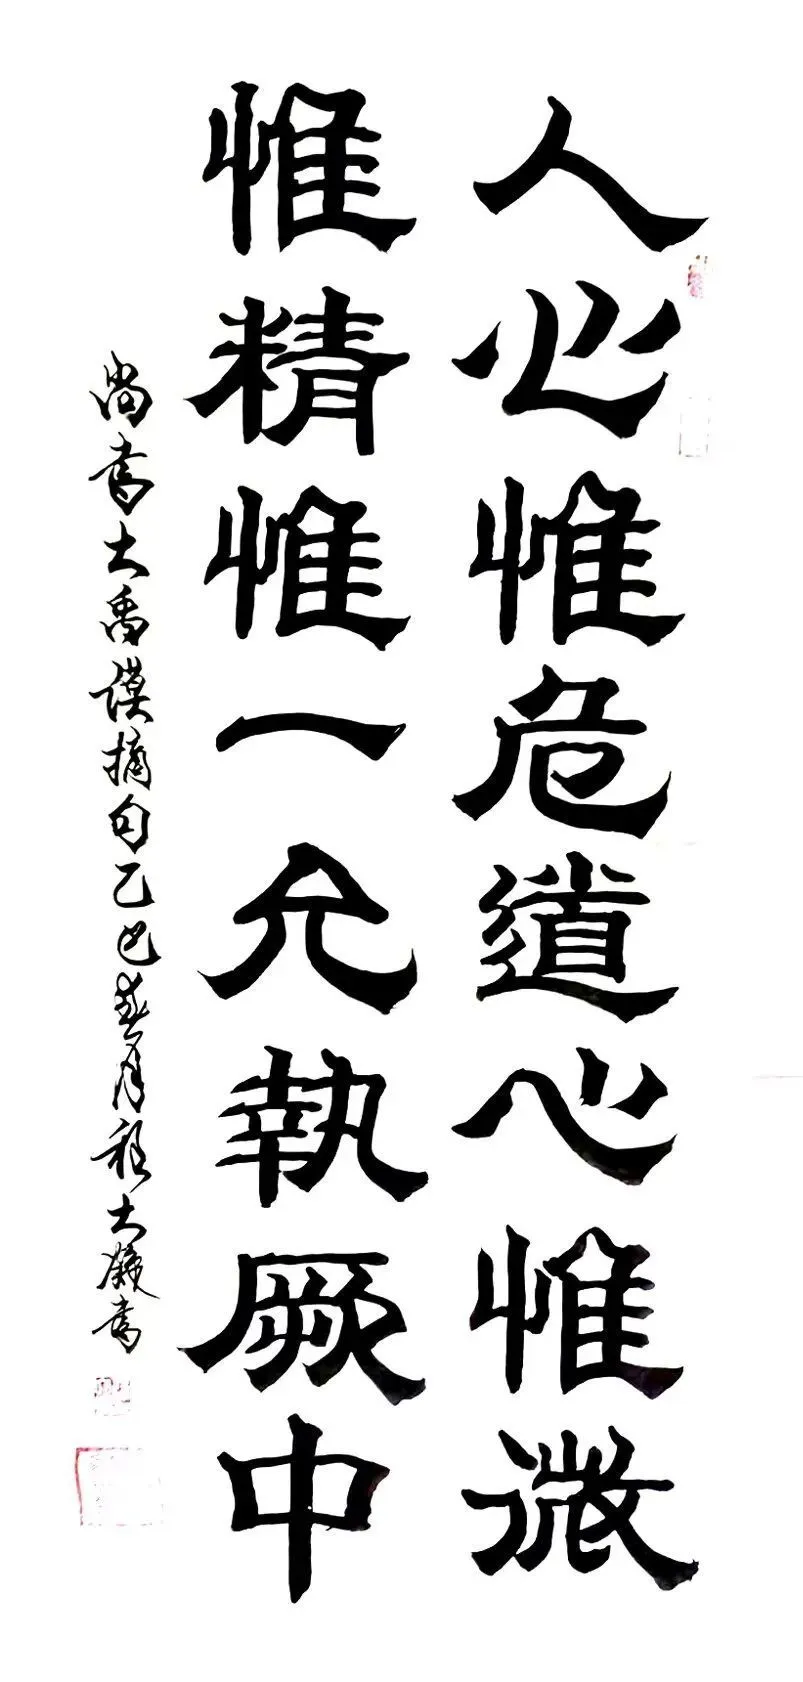 人心惟危道心惟微
惟精惟一允執厥中
尚書大禹謨摘句乙巳春月程大書